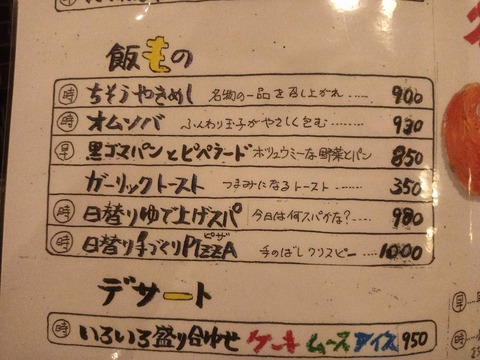 飯もの
時 ちそうやきめし 名物の一品を召し上がれ 900
時 オムソバ ふんわり玉子がやさしく包む……… 930
早 黒ゴマパンとピペラード ボリュウミーな野菜とパン 850
ガーリックトースト つまみになるトースト…… 350
時 日替りゆで上げスパ 今日は何スパかな?…… 980
時 日替り手づくりPIZZA ピザ 手のばしクリスピー…… 1000
デザート
時 いろいろ盛り合せ ケーキ ムース アイス 950